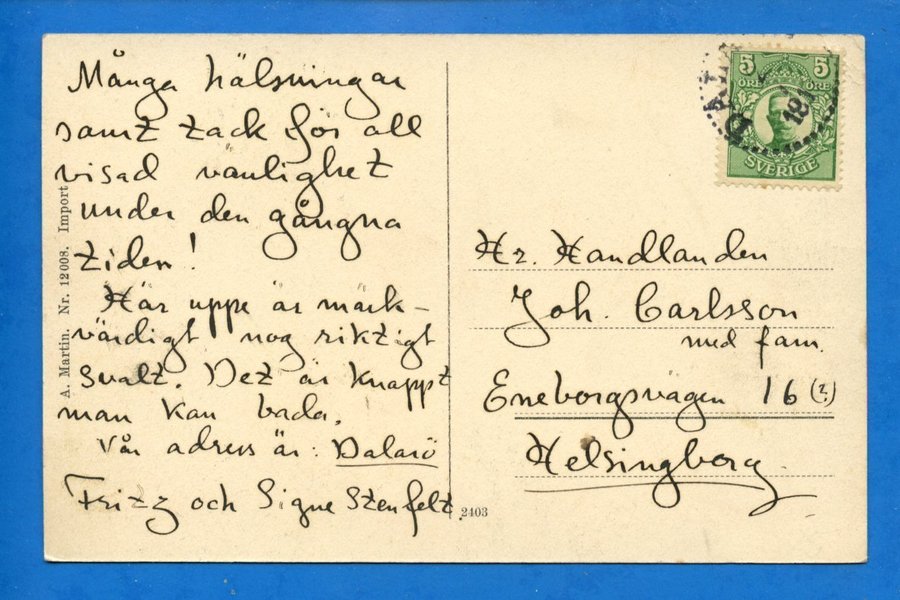 Många hälsningar
samt tack för all
visad vänlighet
under den gångna
tiden!
Här uppe är märk-
värdigt nog riktigt
svalt. Det är knappt
man kan bada.
Vår adress är: Dalarö
Fritz och Signe Stenfelt.
A. Martin. Nr. 12008. Import
2403
5 5
ÖRE ÖRE
SVERIGE
DALA
18
Hr. Handlanden
Joh. Carlsson
med fam.
Eneborgsvägen 16 (?)
Helsingborg.